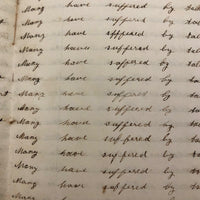 Many have suffered by
Many have suffered by
Many have suffered by
Many have suffered by
Many have suffered by
Many have suffered by
Many have suffered by
Many have suffered by
Many have suffered by
Many have suffered by
Many have suffered by
Many have suffered by